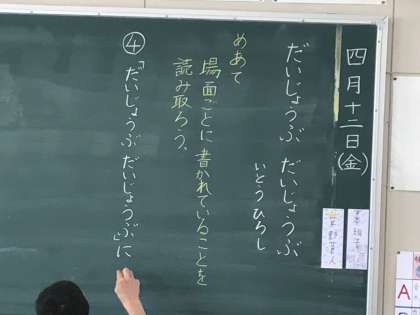 四月十二日(金)
だいじょうぶ だいじょうぶ
いとうひろし
めあて
場面ごとに書かれていることを
読み取ろう。
④「だいじょうぶだいじょうぶ」に
A